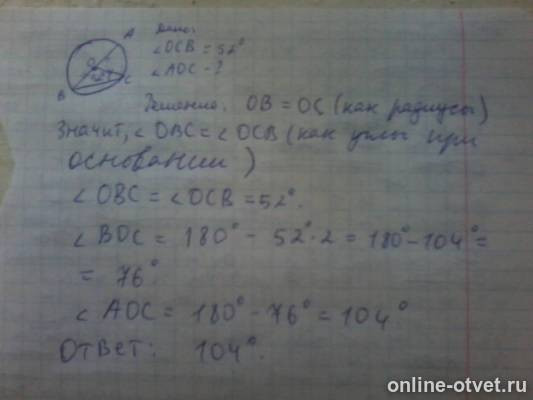 Дано:
∠OCB = 52°
∠AOC - ?
A
O
C
B
Решение: OB = OC (как радиусы)
Значит, ∠OBC = ∠OCB (как углы при
основании)
∠OBC = ∠OCB = 52°.
∠BOC = 180° - 52°·2 = 180° - 104° =
= 76°
∠AOC = 180° - 76° = 104°
Ответ: 104°.
online-otvet.ru